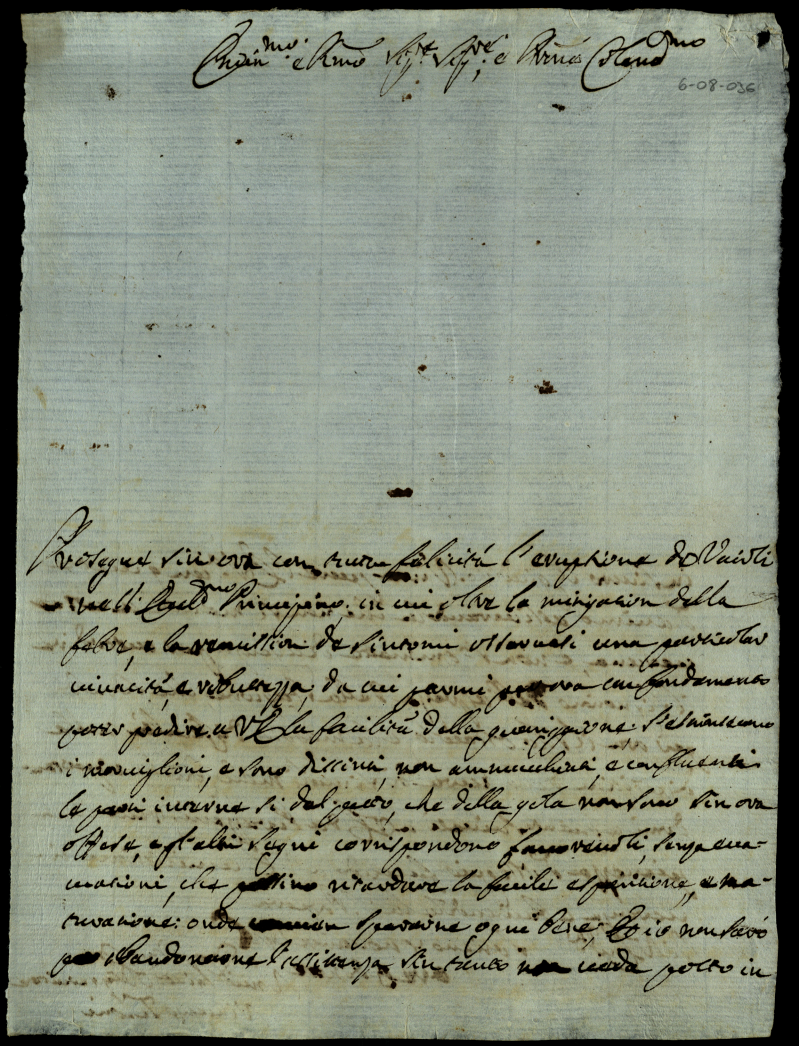 mo e Rmo Sigre Sigre, e Prone Colendmo
6-08-036
Prosegue sin ora con tutta felicità l'eruptione de Vaioli
nell' Ecclmo Principino, in cui oltre la mitigation della
febre, e la remission de sintomi osservasi una particolar
vivacità, e robustezza, da cui parmi per ora con fondamento
poter predire a la facilità della guarigione:
i vaiuglioni, e sono distinti, non ammucchiati, e confluenti
le parti interne si del petto, che della gola non sono sin ora
offese, e gl'altri segni corrispondono favorevoli, senza eva-
cuationi, che possino ritardare la facile espulsione, e ma-
turatione: onde sperarne ogni bene, Et io non sarò
per abandonarne l'assistenza sin tanto non veda posto in